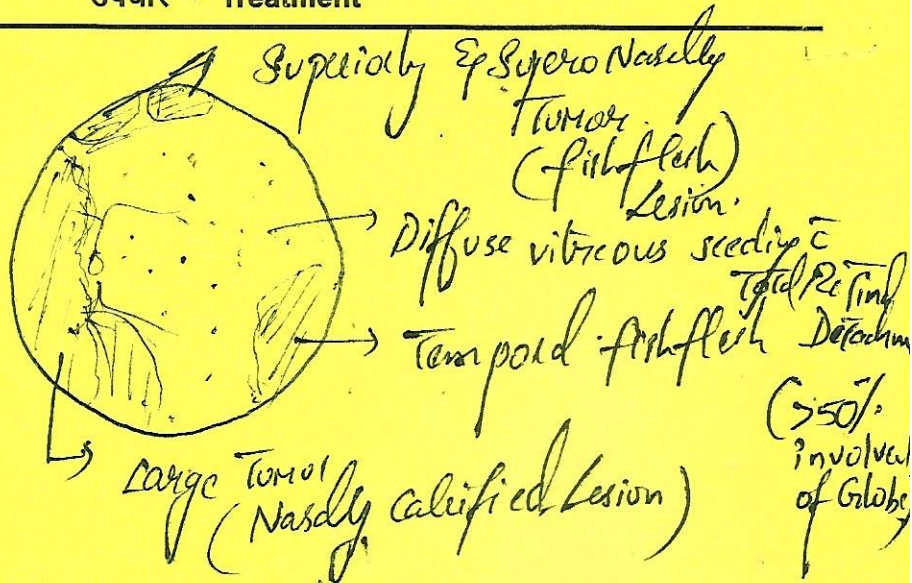 उपचार • Treatment
Superiorly & Supero Nasally
Tumor
(fishflesh)
Lesion.
Diffuse vitreous seeding c̄
Total Retinal
Detachm
Temporal fishflesh
(>50%
involvel
of Globe)
Large Tumor
(Nasally Calcified Lesion)